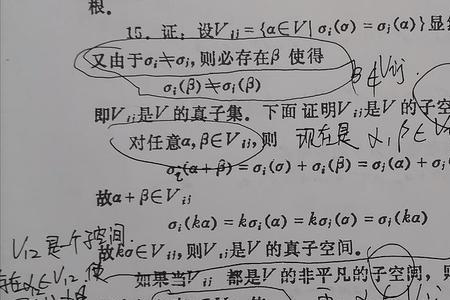 根。
15. 证：设V_{ij}={α∈V|σ_i(σ)=σ_j(α)}显
又由于σ_i≠σ_j,则必存在β 使得
σ_i(β)≠σ_j(β)
β∉V_{ij}
即V_{ij}是V 的真子集。下面 证明V_{ij}是V 的子空
对任意α,β∈V_{ij},则 现在是 α,β∈V
σ_i(α+β)=σ_i(σ)+σ_i(β)=σ_j(α)+σ
故α+β∈V_{ij}
σ_i(kα)=kσ_i(α)=kσ_j(σ)=σ_j(kα)
V_{12}是一个子空间.
故kσ∈V_{ij},则V_{ij}是V 的真子空间。
V_{12},使
如果当V_{ij} 都是V 的非平凡的子空间,